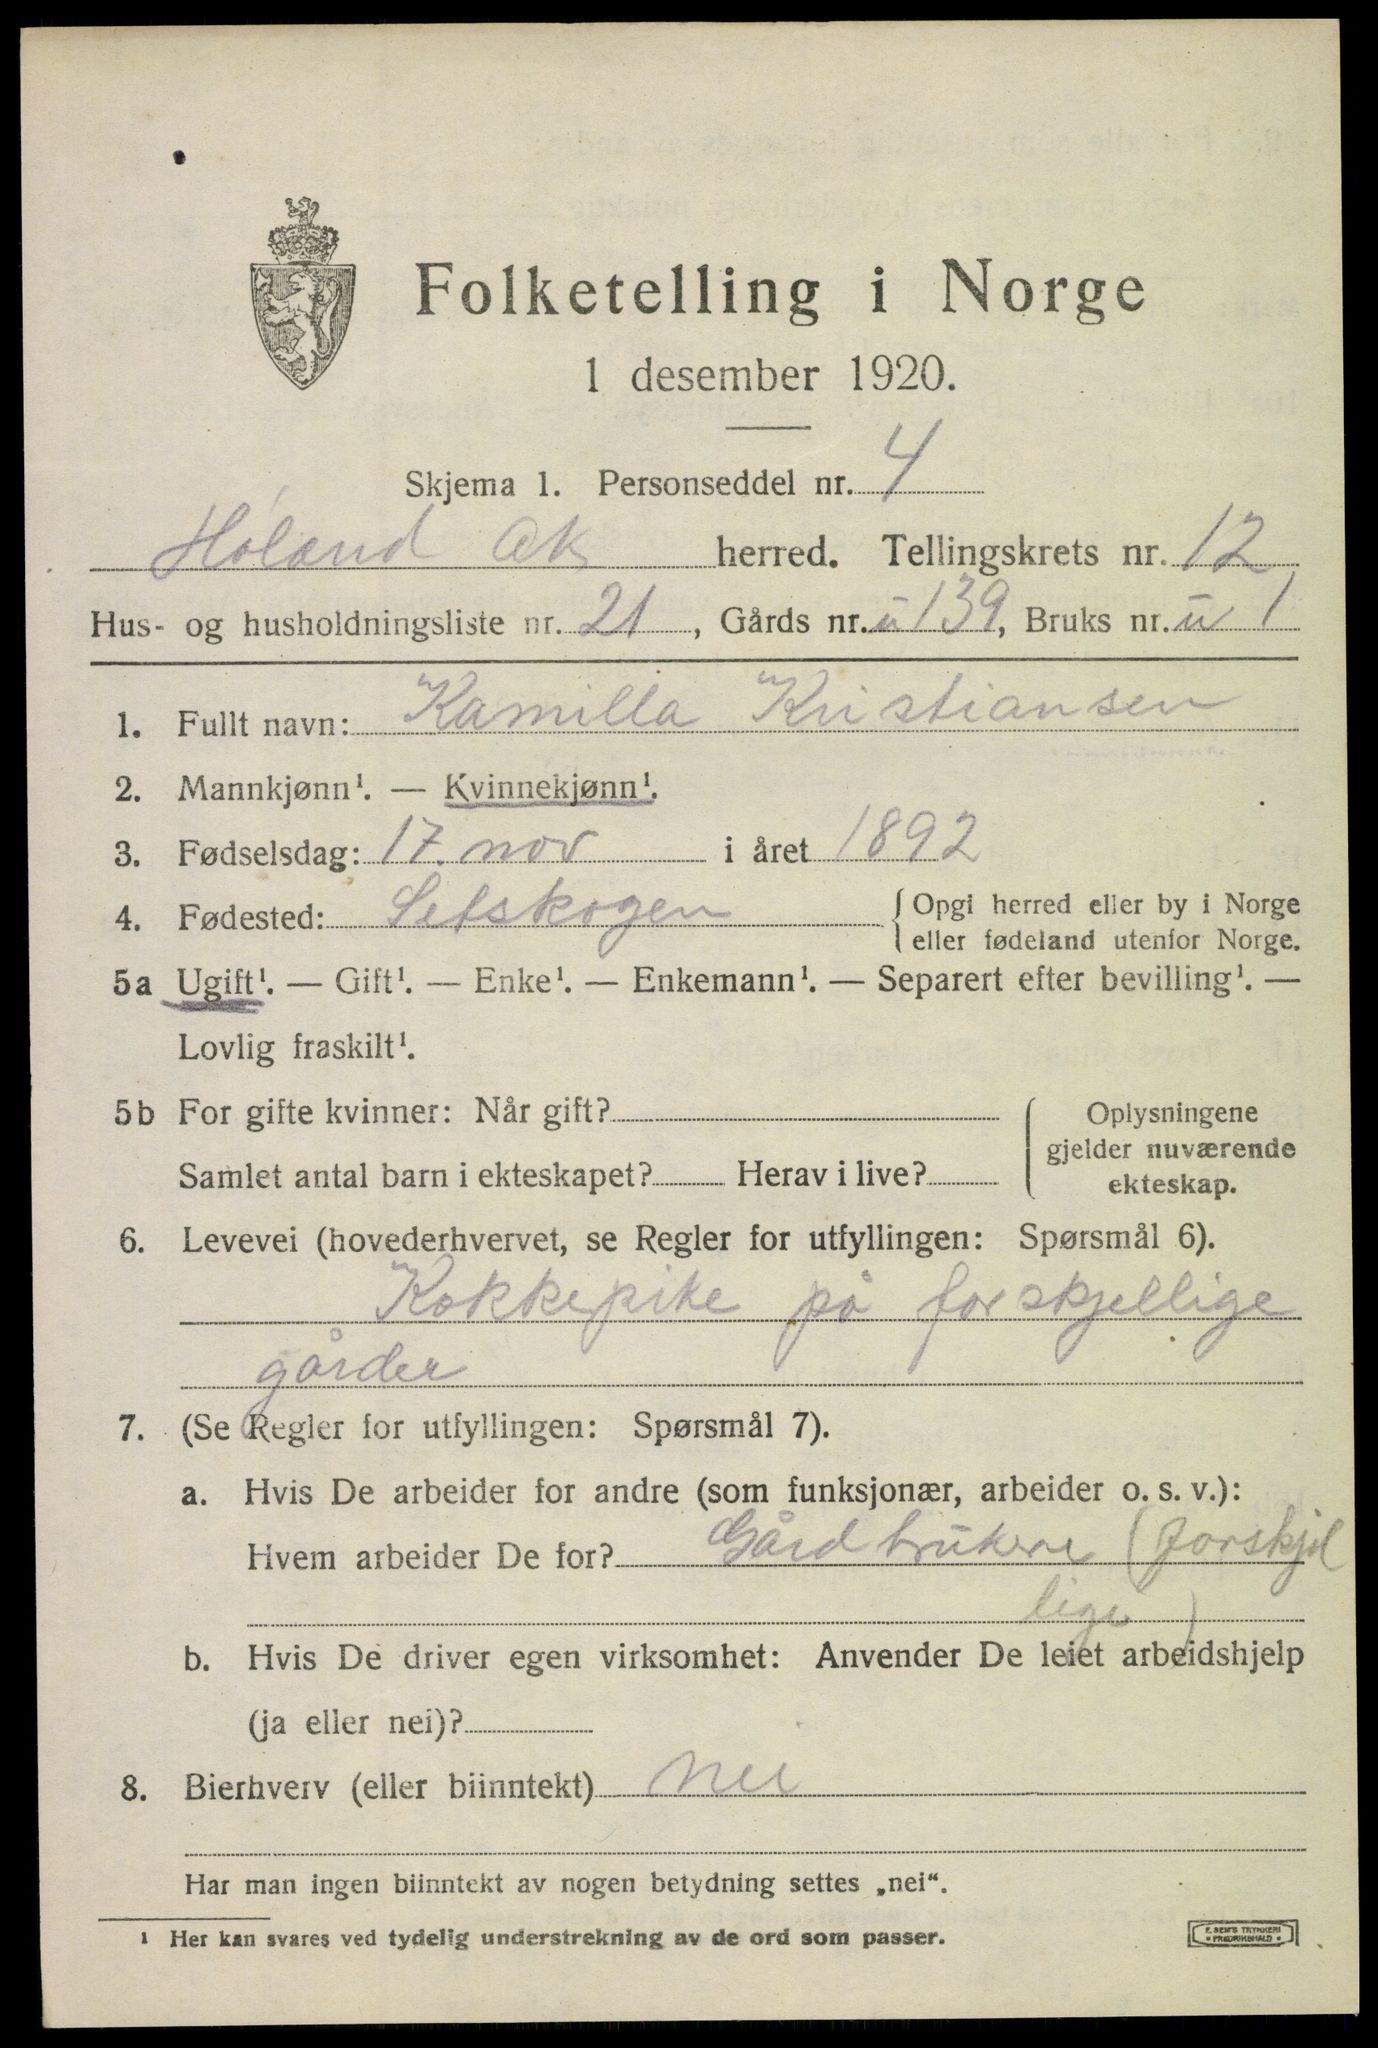 Folketelling i Norge
1 desember 1920.
Skjema 1. Personseddel nr. 4
Høland Ak herred. Tellingskrets nr. 12
Hus- og husholdningsliste nr. 21, Gårds nr. u 139, Bruks nr. u 1
1. Fullt navn: Kamilla Kristiansen
2. Mannkjønn¹. — Kvinnekjønn¹.
3. Fødselsdag: 17. nov i året 1892
4. Fødested: Setskogen { Opgi herred eller by i Norge
eller fødeland utenfor Norge.
5a Ugift¹. — Gift¹. — Enke¹. — Enkemann¹. — Separert efter bevilling¹. —
Lovlig fraskilt¹.
5b For gifte kvinner: Når gift? { Oplysningene
gjelder nuværende
Samlet antal barn i ekteskapet? Herav i live? ekteskap.
6. Levevei (hovederhvervet, se Regler for utfyllingen: Spørsmål 6).
Kokkepike på forskjellige
gårder
7. (Se Regler for utfyllingen: Spørsmål 7).
a. Hvis De arbeider for andre (som funksjonær, arbeider o. s. v.):
Hvem arbeider De for? Gårdbrukere (forskjel
lige)
b. Hvis De driver egen virksomhet: Anvender De leiet arbeidshjelp
(ja eller nei)?
8. Bierhverv (eller biinntekt) nei
Har man ingen biinntekt av nogen betydning settes „nei“.
¹ Her kan svares ved tydelig understrekning av de ord som passer.
E. SEM'S TRYKKERI
FREDRIKSHALD